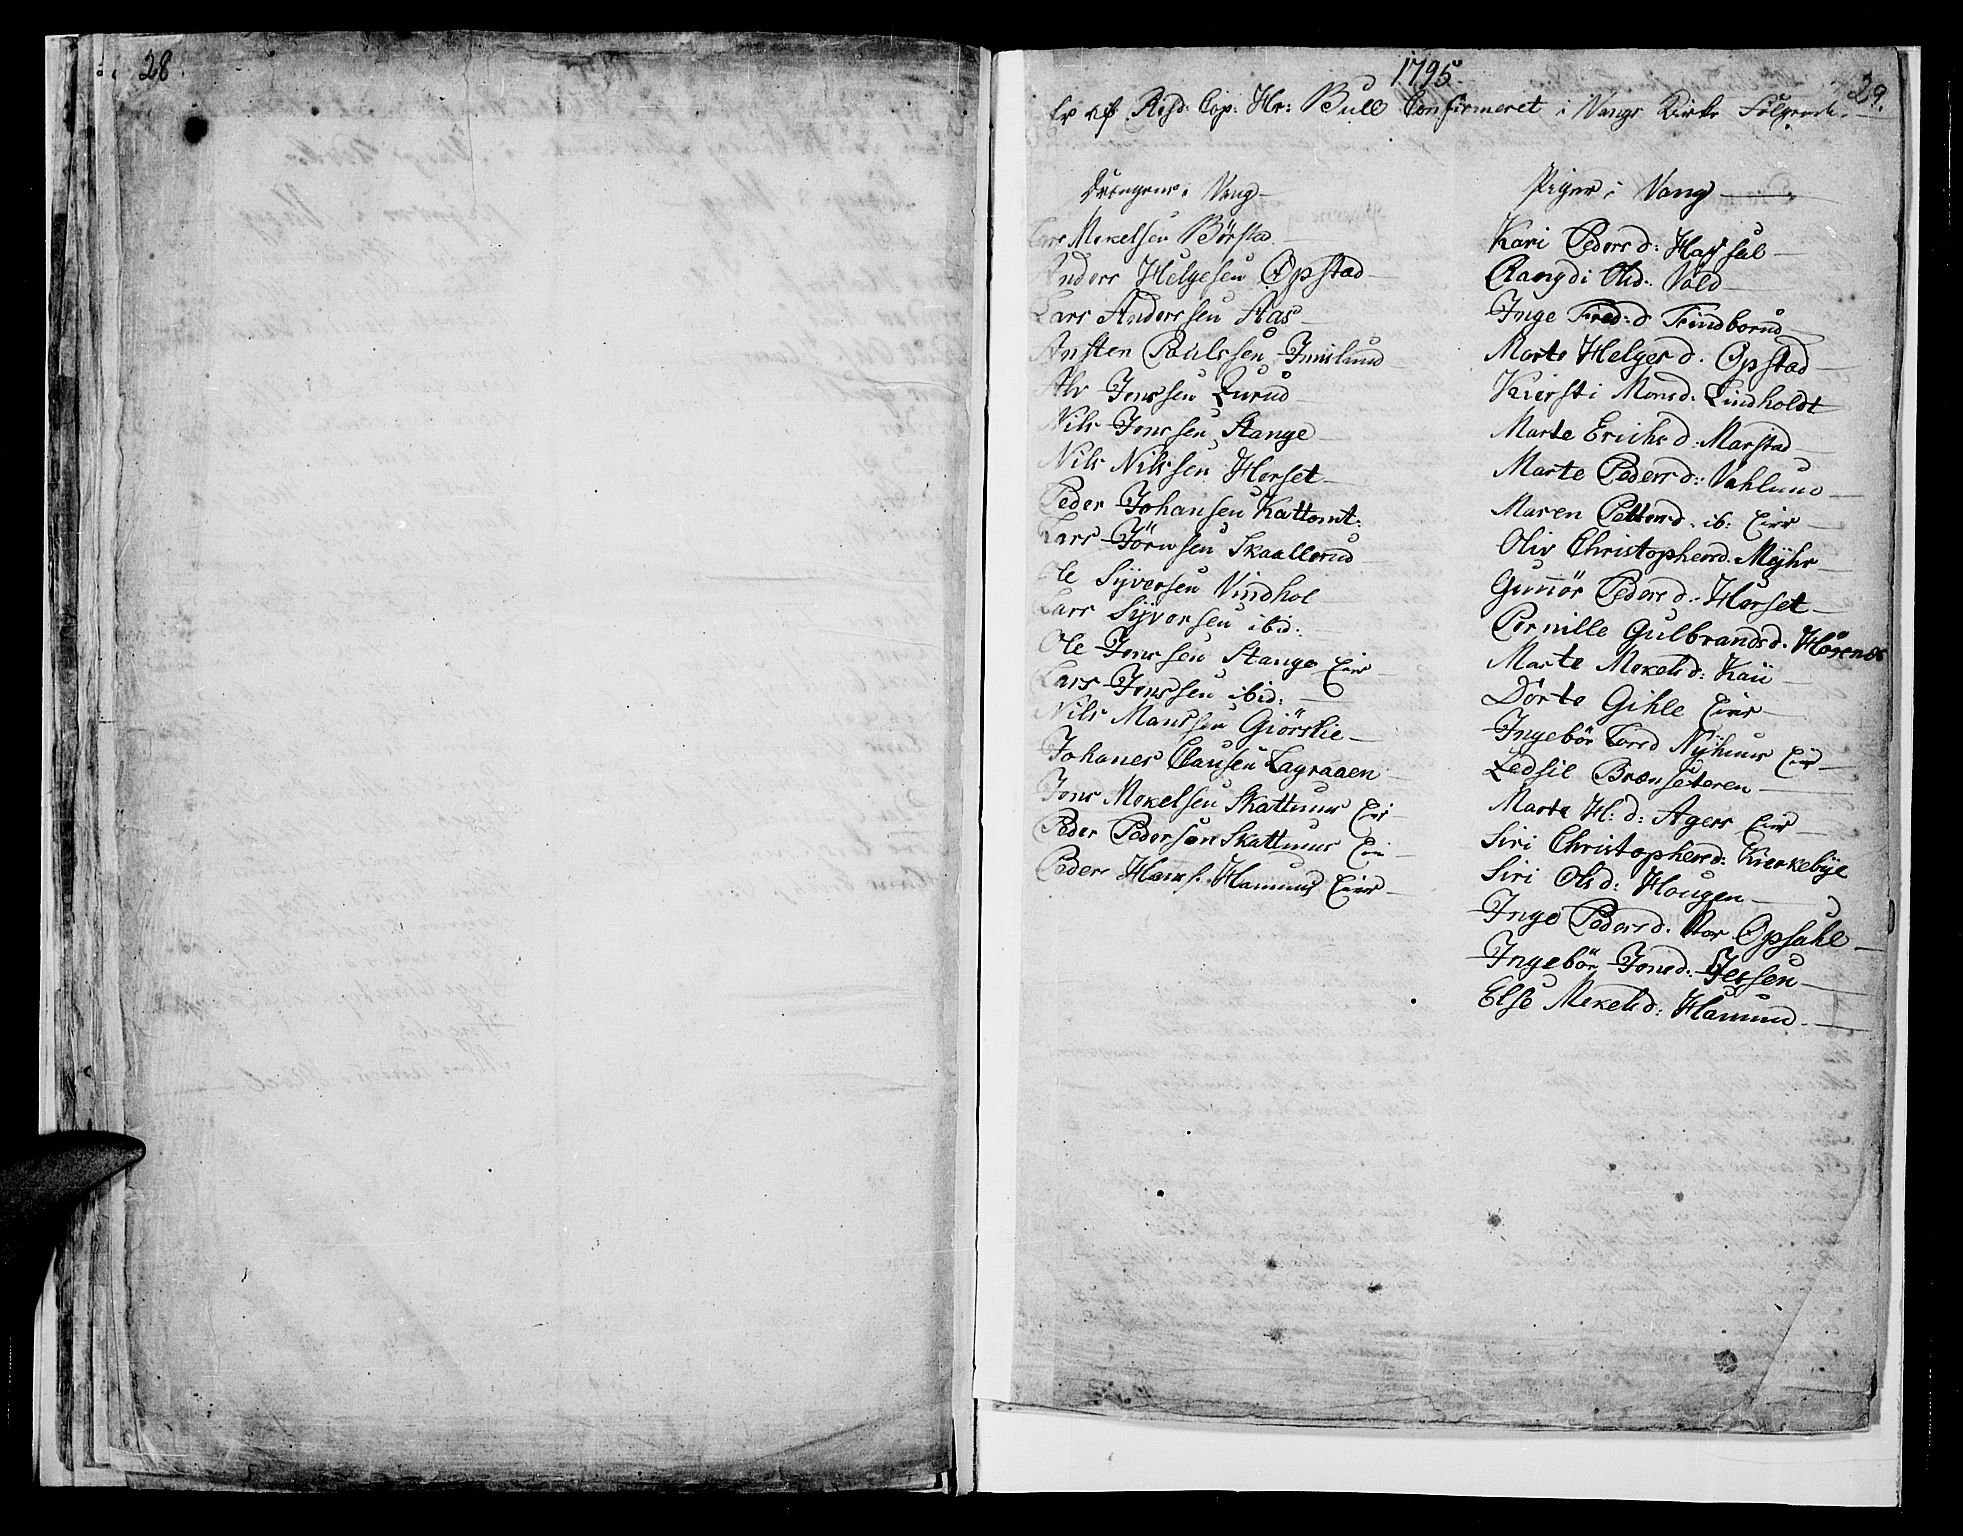 28.
1795.
29.
Er af Resd: Cap: Hr: Bull Confirmeret i Vangs Kirke Følgende.
Drengene i Vang
Lars Mekelsen Børstad
Anders Helgesen Opstad
Lars Anderssen Aas
Ansten Paulssen Imislund
Alv Jenssen Lurud
Nils Jenssen Stange
Nils Nilssen Horset
Peder Johansen Kattomt:
Lars Jörensen Skaallerud
Ole Syversen Vindhol
Lars Syversen ibid:
Ole Jenssen Stange Eier
Lars Jenssen ibid:
Nils Manssen Giörslie
Johanes Clausen Lagraaen
Jens Mekelsen Skattuus Eier
Peder Pedersen Skattuus Eier
Peder Hans. Hamund Eier
Piger i Vang
Kari Peders d: Hassal
Rangdi Olsd: Vold
Inge Fred: d Frindborud
Marte Helges d. Opstad
Kiersti Monsd: Lindholdt
Marte Erichs d: Marstad
Marte Peders d: Vahlund
Maren Petters d. ib: Eier
Oliv Christophersd. Mejhr
Gunnör Peders d: Horset
Pernille Gulbrandsd. Hösenes
Marte Mekelsd: Kaü
Dörte Gihle Eier
Ingebör Larsd Nyhuus Eier
Zedsil Brænseteren
Marte H: d: Agers Eier
Siri Christophersd: Kierkebye
Siri Olsd: Hougen
Inge Pedersd. Stor Opsahl
Ingebör Jensd: Jessen
Else Mekelsd: Hamund